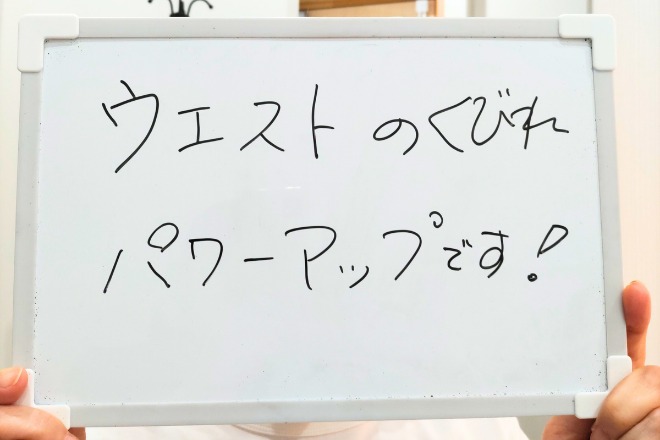 ウエストのくびれ
パワーアップです!